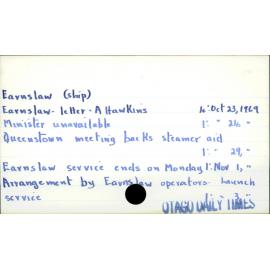 Earnslaw (ship)
Earnslaw - letter - A Hawkins 4: Oct 23, 1969
Minister unavailable 1: " 24, "
Queenstown meeting backs steamer aid
1: " 29, "
Earnslaw service ends on Monday 1: Nov 1, "
Arrangement by Earnslaw operators launch
service " 3, "
OTAGO DAILY TIMES